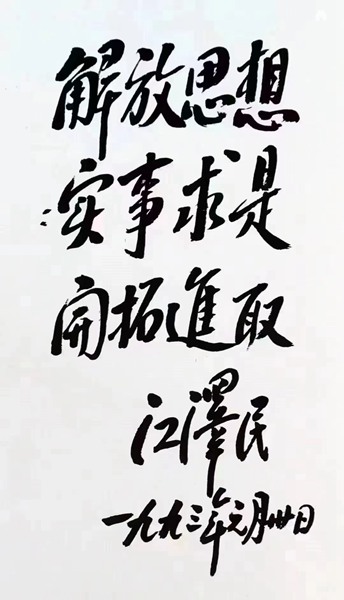 解放思想
实事求是
开拓進取
江澤民
一九九三年元月卅日